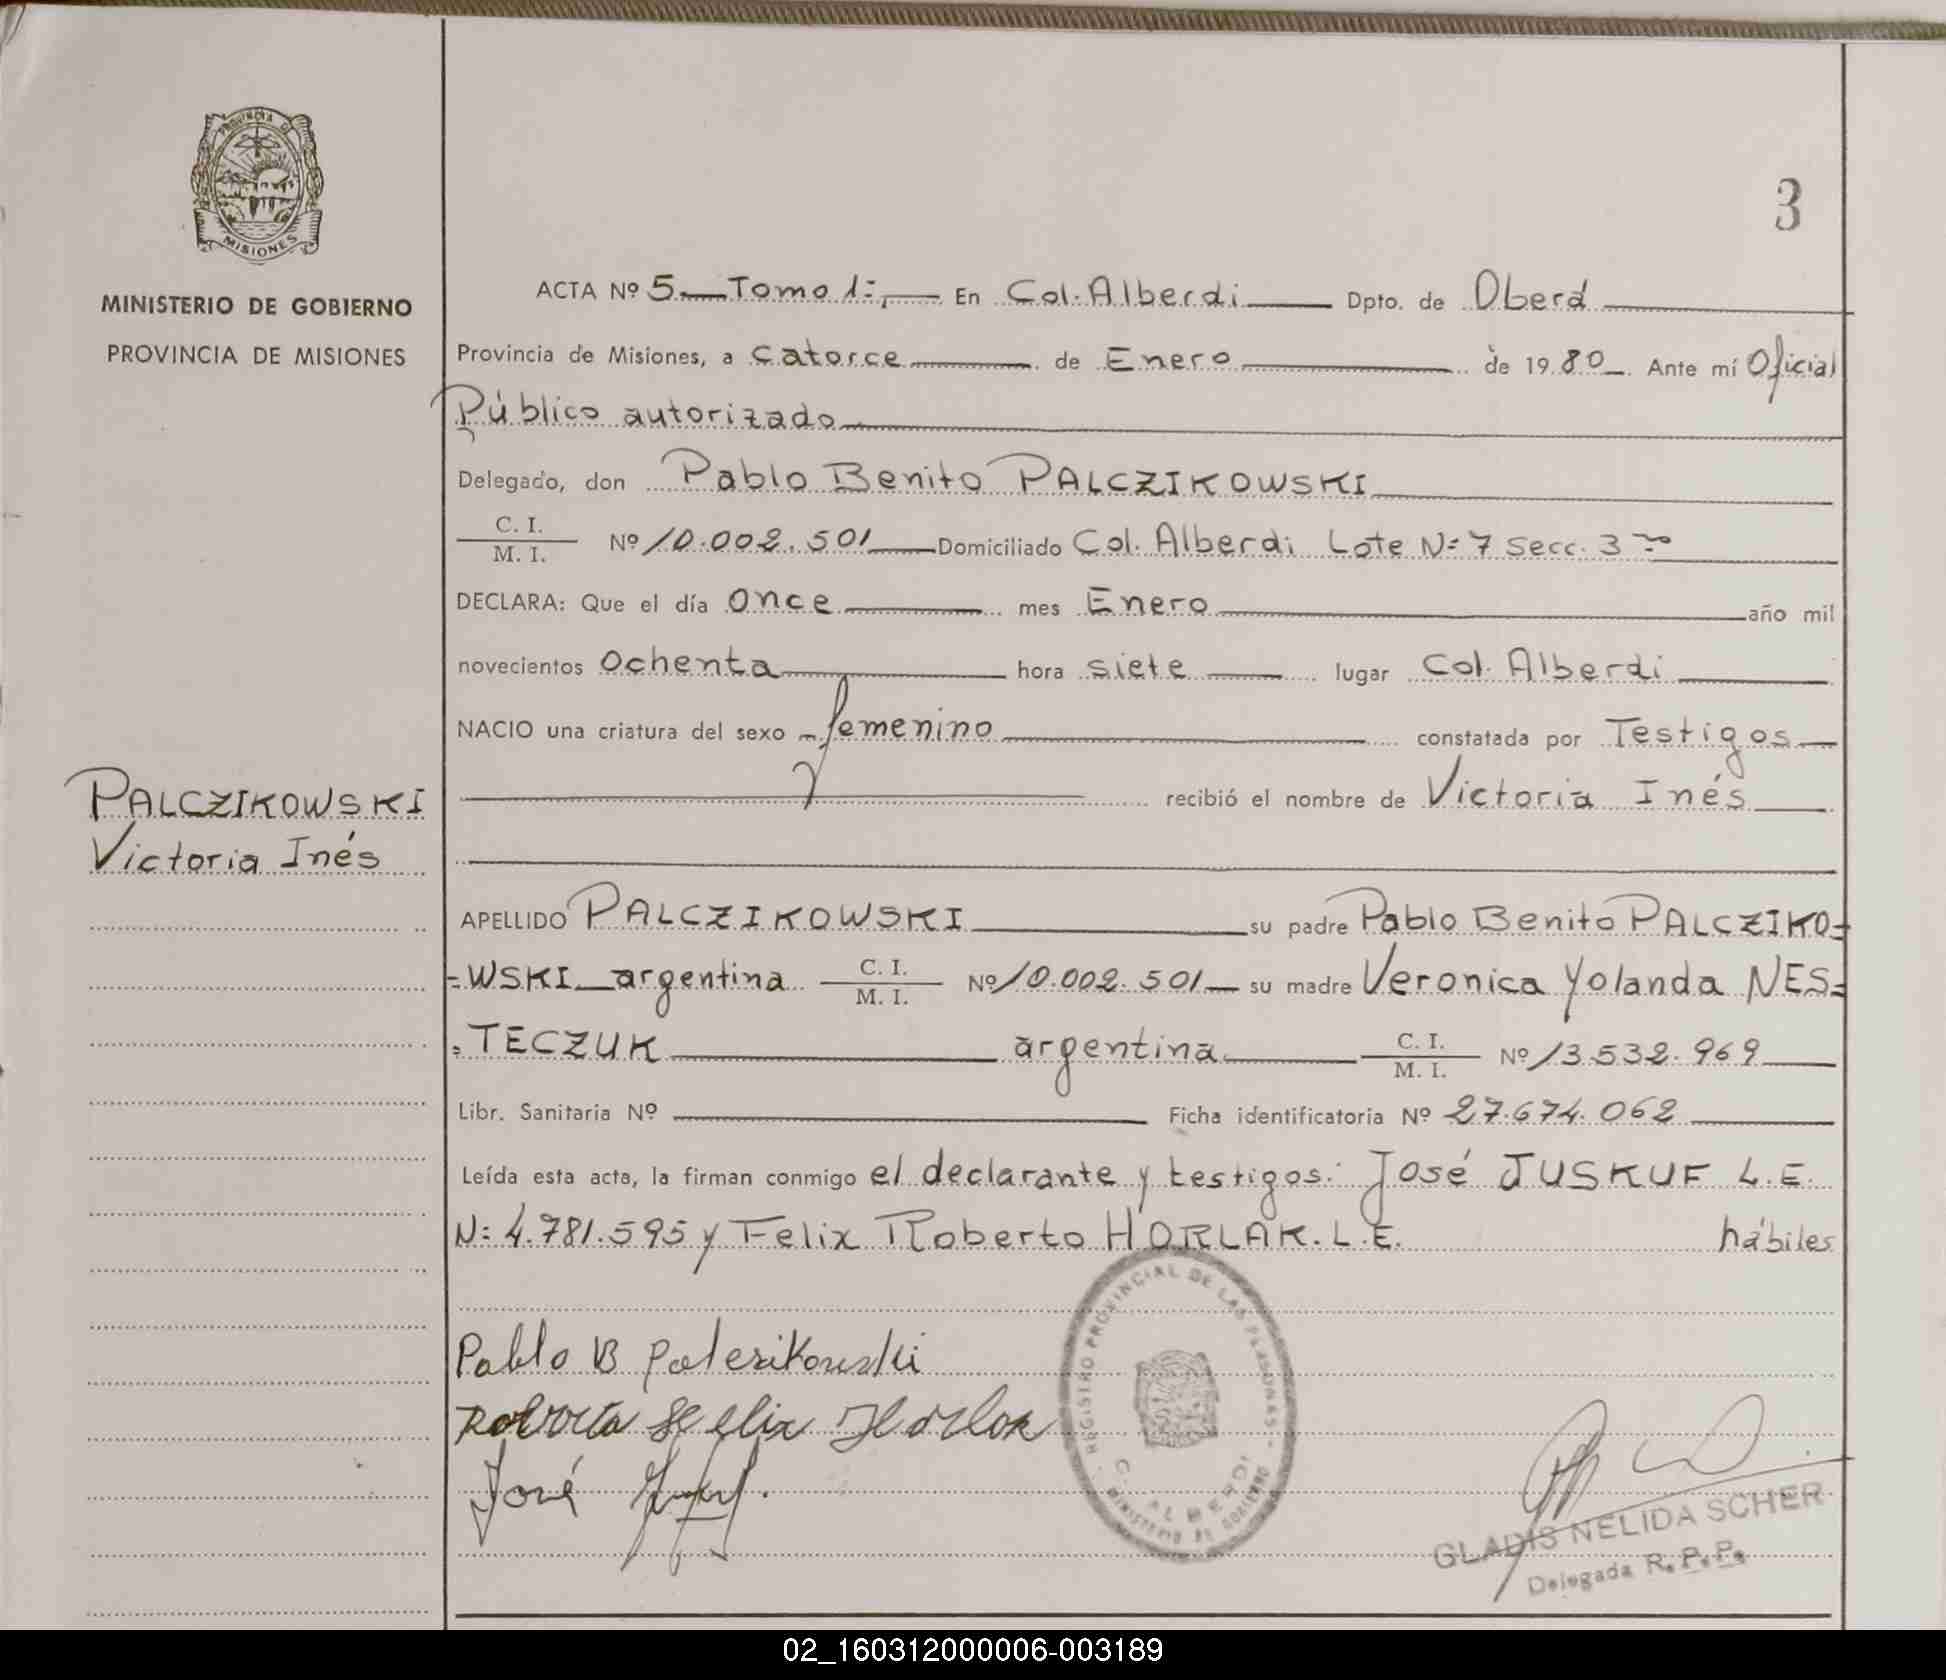 PROVINCIA DE
MISIONES
MINISTERIO DE GOBIERNO
PROVINCIA DE MISIONES
3
ACTA Nº 5 Tomo 1: En Col. Alberdi Dpto. de Oberá
Provincia de Misiones, a catorce de Enero de 1980 Ante mí Oficial
Público autorizado
Delegado, don Pablo Benito PALCZIKOWSKI
C. I.
M. I. Nº 10.002.501 Domiciliado Col. Alberdi Lote N= 7 Secc. 3
DECLARA: Que el día once mes Enero año mil
novecientos ochenta hora siete lugar Col. Alberdi
NACIO una criatura del sexo femenino constatada por Testigos
recibió el nombre de Victoria Inés
PALCZIKOWSKI
Victoria Inés
APELLIDO PALCZIKOWSKI su padre Pablo Benito PALCZIKO=
=WSKI argentina C. I. M. I. Nº 10.002.501 su madre Veronica Yolanda NES=
=TECZUK argentina C. I. M. I. Nº 13.532.969
Libr. Sanitaria Nº Ficha identificatoria Nº 27.674.062
Leída esta acta, la firman conmigo el declarante y testigos: José JUSKUF L.E.
N: 4.781.595 y Felix Roberto HORLAK. L.E. hábiles
REGISTRO PROVINCIAL DE LAS PERSONAS
C. ALBERDI
MINISTERIO DE GOBIERNO
Pablo B Palczikowski
Roberto Felix Horlak
José
GLADIS NELIDA SCHER
Delegada R. P. P.
02_160312000006-003189